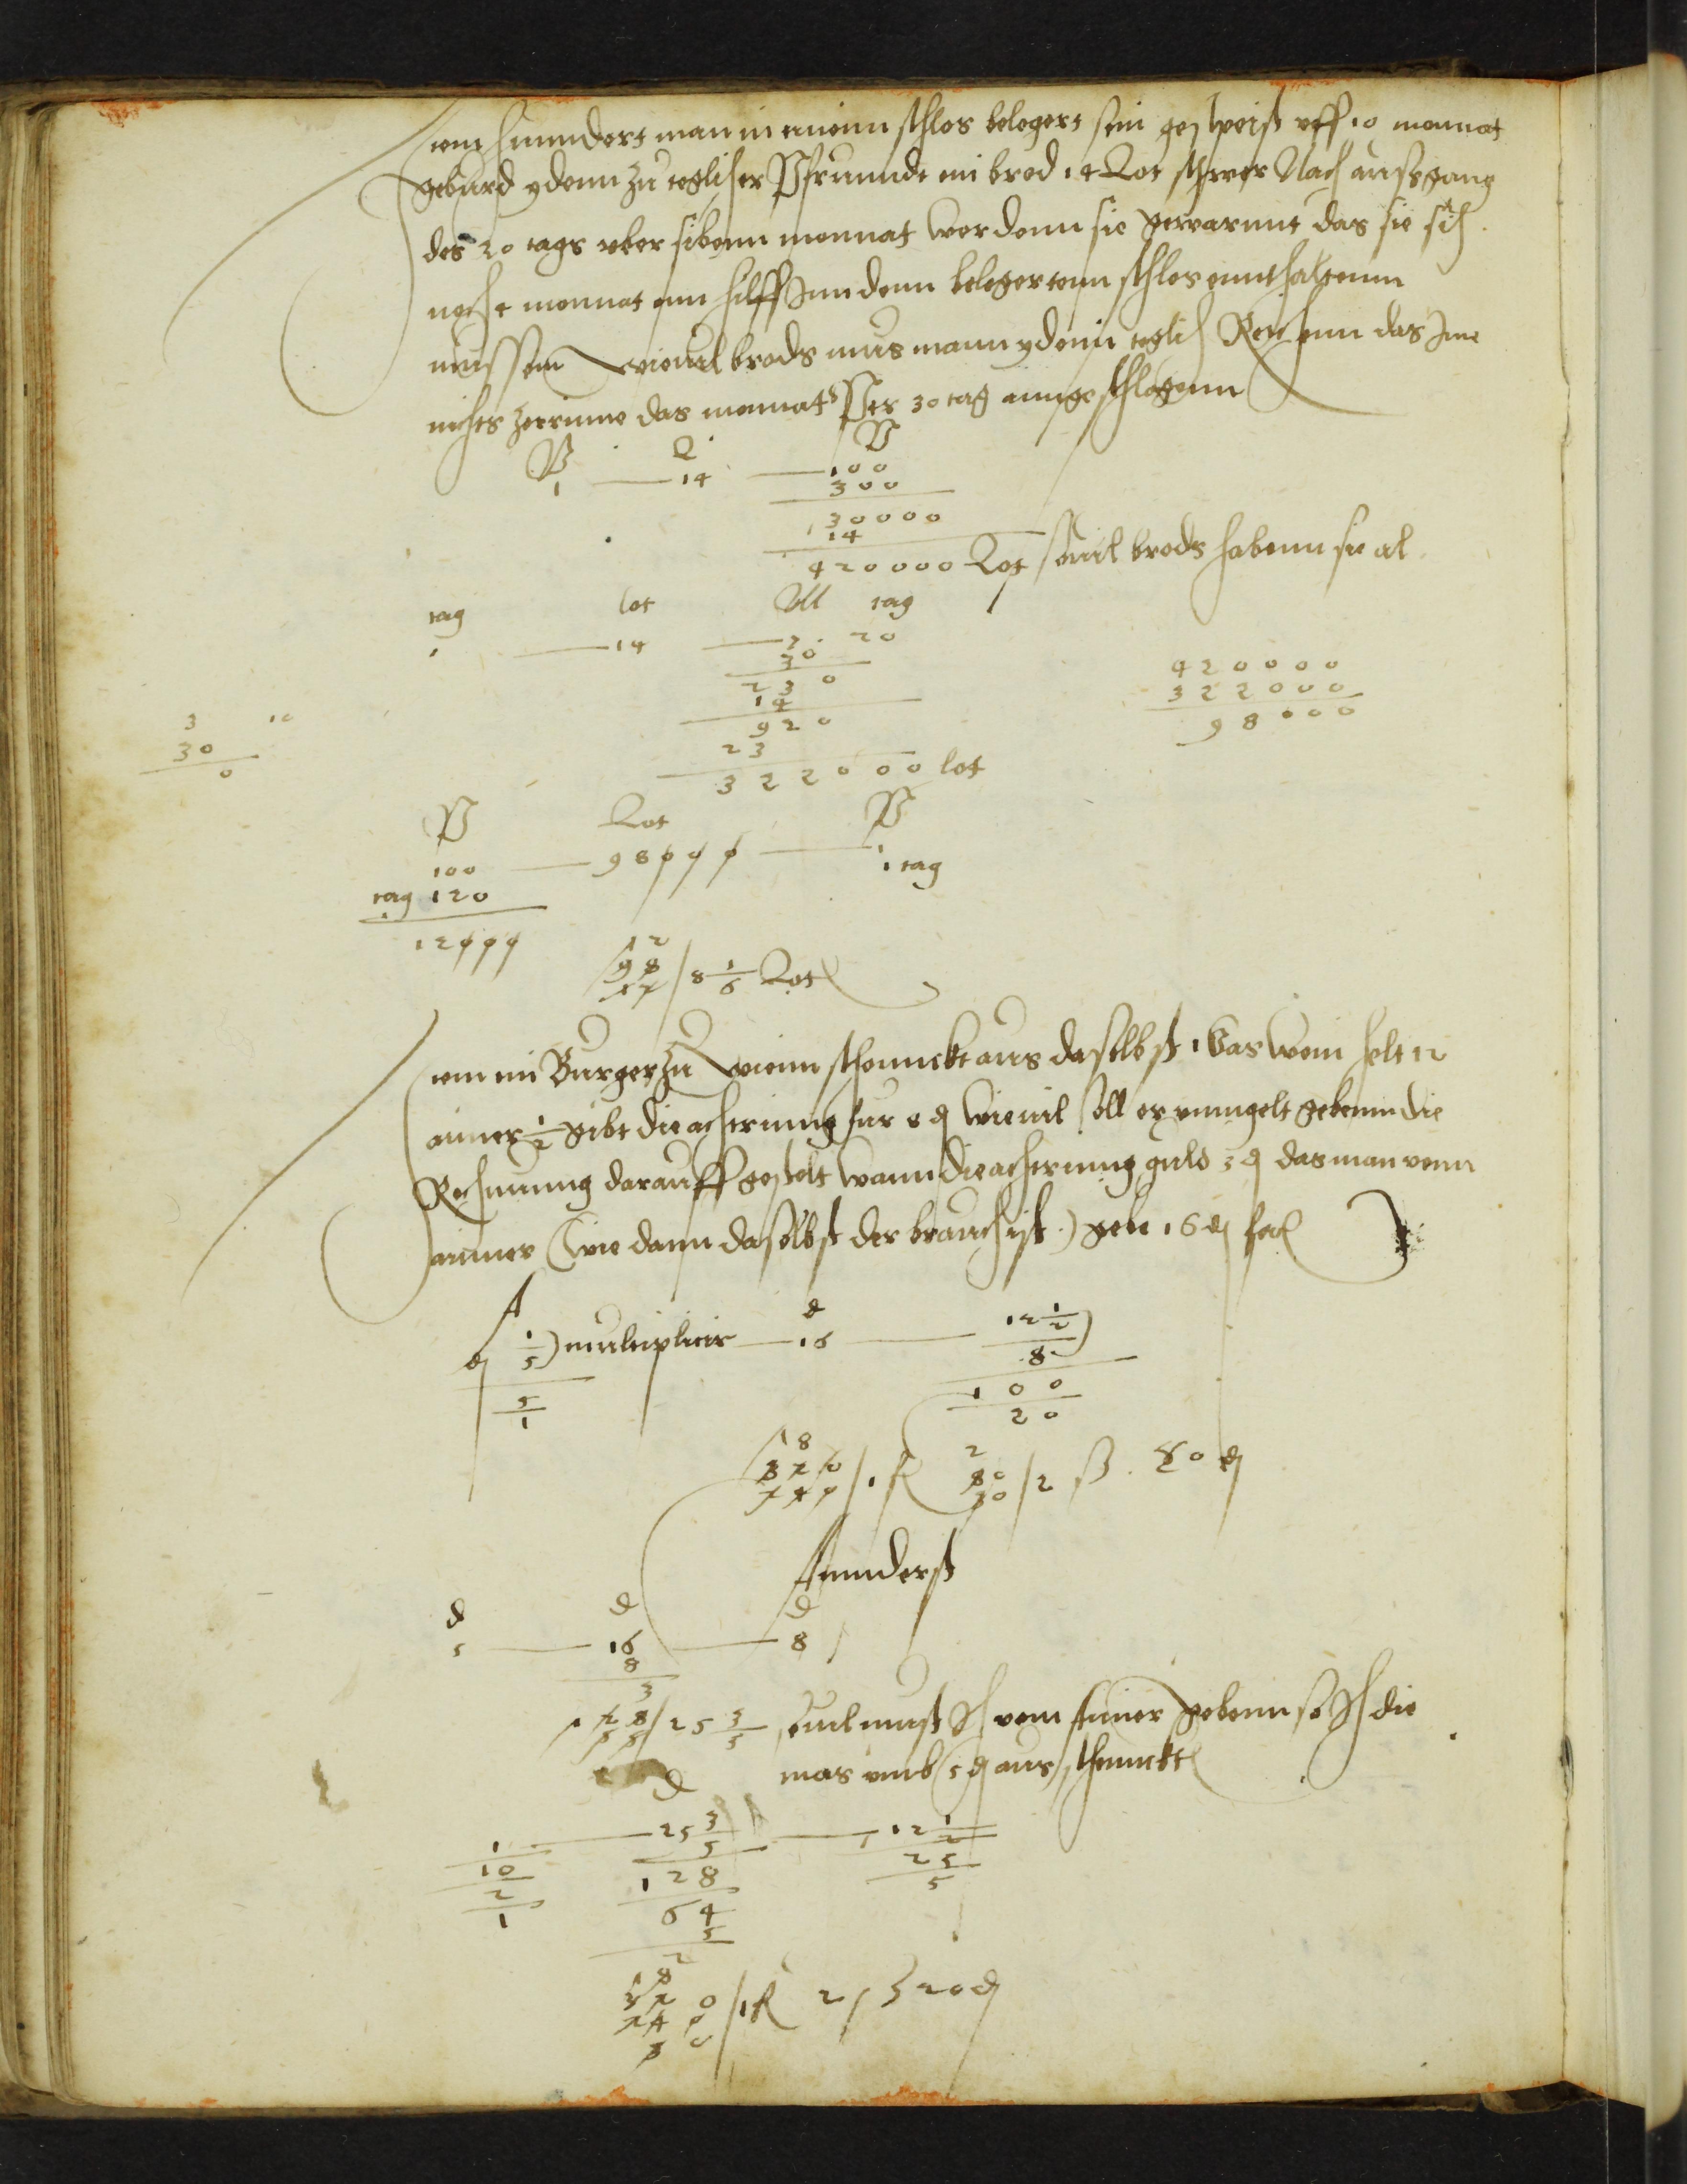 Item hunndert man in einem schlos belegert sein gespeist uff 10 monnat
geburd ydenn zu teglicher Pfrunndt ein brod 14 Lot schwer Nach aussgang
des 20 tags uber sibenn monnat werdenn sie gewarnnt das sie sich
noch 4 monnat onn hilff Inn denn belegertenn schlos ennthaltenn
mussenn wieuil brods mus mann ydenn teglich Reichenn das Ine
nichts zerrinne das monnat Per 30 tag anngeschlagenn
P L P
1 — 14 — 100
300
30000
14
420000 Lot souil brods habenn sie al
tag lot M tag
1 — 14 — 7. 20
30
230
14
920
23
322000 lot
420000
322000
98000
3 10
30
0
P Lot P
100 — 98000 — 1
1 tag
tag 120
12000
12
98 / 8 1/6 Lot
12
Item ein Burger zu wienn schennckt aus daselbst 1 Vas wein helt 12
aimer 1/2 gibt die achterinng fur 8 d wieuil soll er unngelt gebenn die
Rechnung darauff gestelt wann die achterinng guld 5 d das man vonn
aimer (wie dann daselbst der brauch ist) gebe 16 d fac
A d
d 1/5) multiplicir — 16 — 12 1/2)
8
5/1
100
20
18
320 / 1 fl 80 / 2 ß. 20 d
240 30
Annderst
d d d
5 — 16 — 8
8
3
128 / 25 3/5 souil must Ich vom Aimer gebenn so Ich die
55
mas umb 8 d aus schennckt
d
1 — 25 3/5 — 12 1/2
10 128 25
2 64 5
1 5
28
320 / 1 fl 2 ß 20 d
240
30